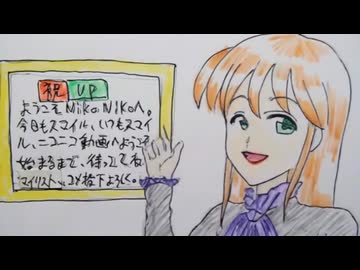 祝 UP
ようこそMikoNikoへ。
今日もスマイル、いつもスマイ
ル、ニコニコ動画へようこそ
始まるまで、待ってて ね
マイリスト、コメ 下よろしく。